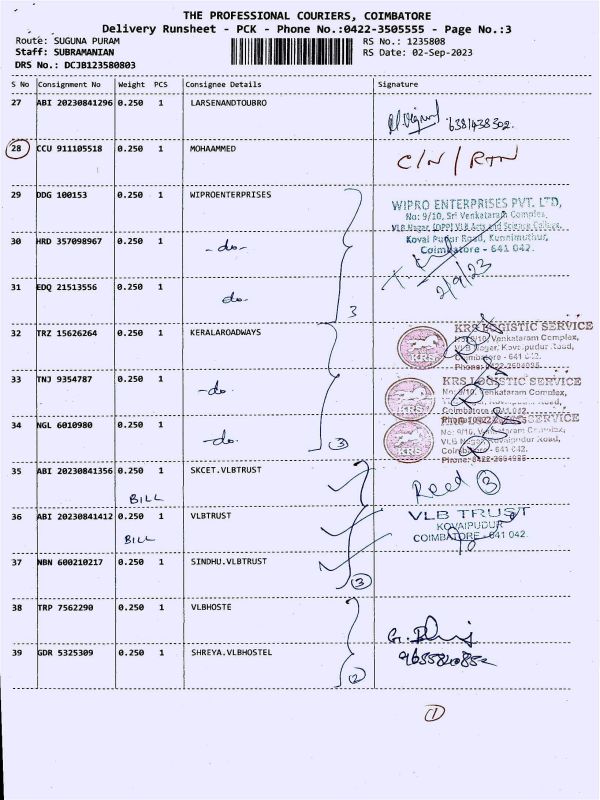 THE PROFESSIONAL COURIERS, COIMBATORE
Delivery Runsheet - PCK - Phone No.:0422-3505555 - Page No.:3
Route: SUGUNA PURAM RS No.: 1235808
Staff: SUBRAMANIAN RS Date: 02-Sep-2023
DRS No.: DCJB123580803
S No Consignment No Weight PCS Consignee Details Signature
27 ABI 20230841296 0.250 1 LARSENANDTOUBRO
6381438302.
28 CCU 911105518 0.250 1 MOHAAMMED C/N / RTN
29 DDG 100153 0.250 1 WIPROENTERPRISES
WIPRO ENTERPRISES PVT. LTD,
No: 9/10, Sri Venkataram Complex,
VLB Nagar, (OPP) VLB Arts and Science College,
30 HRD 357098967 0.250 1 -do- Kovai Pudur Road, Kunnimuthur,
Coimbatore - 641 042.
2/9/23
31 EDQ 21513556 0.250 1 do-
3
32 TRZ 15626264 0.250 1 KERALAROADWAYS
KRS LOGISTIC SERVICE
No: 9/10, Venkataram Complex,
VLB Nagar, Kovaipudur Road,
Coimbatore - 641 042.
Phone: 0422-2604985
33 TNJ 9354787 0.250 1 -do-
KRS LOGISTIC SERVICE
KRS
34 NGL 6010980 0.250 1 -do-
KRS
3
35 ABI 20230841356 0.250 1 SKCET.VLBTRUST
BILL
Recd 3
36 ABI 20230841412 0.250 1 VLBTRUST
BILL
VLB TRUST
KOVAIPUDUR
COIMBATORE - 641 042.
37 NBN 600210217 0.250 1 SINDHU.VLBTRUST
3
38 TRP 7562290 0.250 1 VLBHOSTE
39 GDR 5325309 0.250 1 SHREYA.VLBHOSTEL
2
1